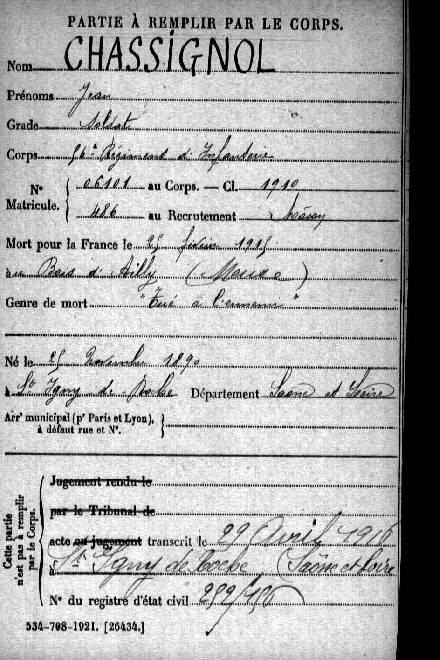 PARTIE À REMPLIR PAR LE CORPS.
Nom CHASSIGNOL
Prénoms Jean
Grade Soldat
Corps 56e Régiment d'Infanterie
No Matricule. { 06101 au Corps. — Cl. 1910
486 au Recrutement Mâcon
Mort pour la France le 25 février 1915
au Bois d'Ailly (Meuse)
Genre de mort "Tué à l'ennemi"
Né le 25 Novembre 1890
à St Igny de Roche Département Saône et Loire
Arrt municipal (pr Paris et Lyon), à défaut rue et No. }
Cette partie n'est pas à remplir par le Corps.
Jugement rendu le
par le Tribunal de
acte ou jugement transcrit le 29 Avril 1916
à St Igny de Roche Saône et Loire
No du registre d'état civil
534-708-1921. [26434.]